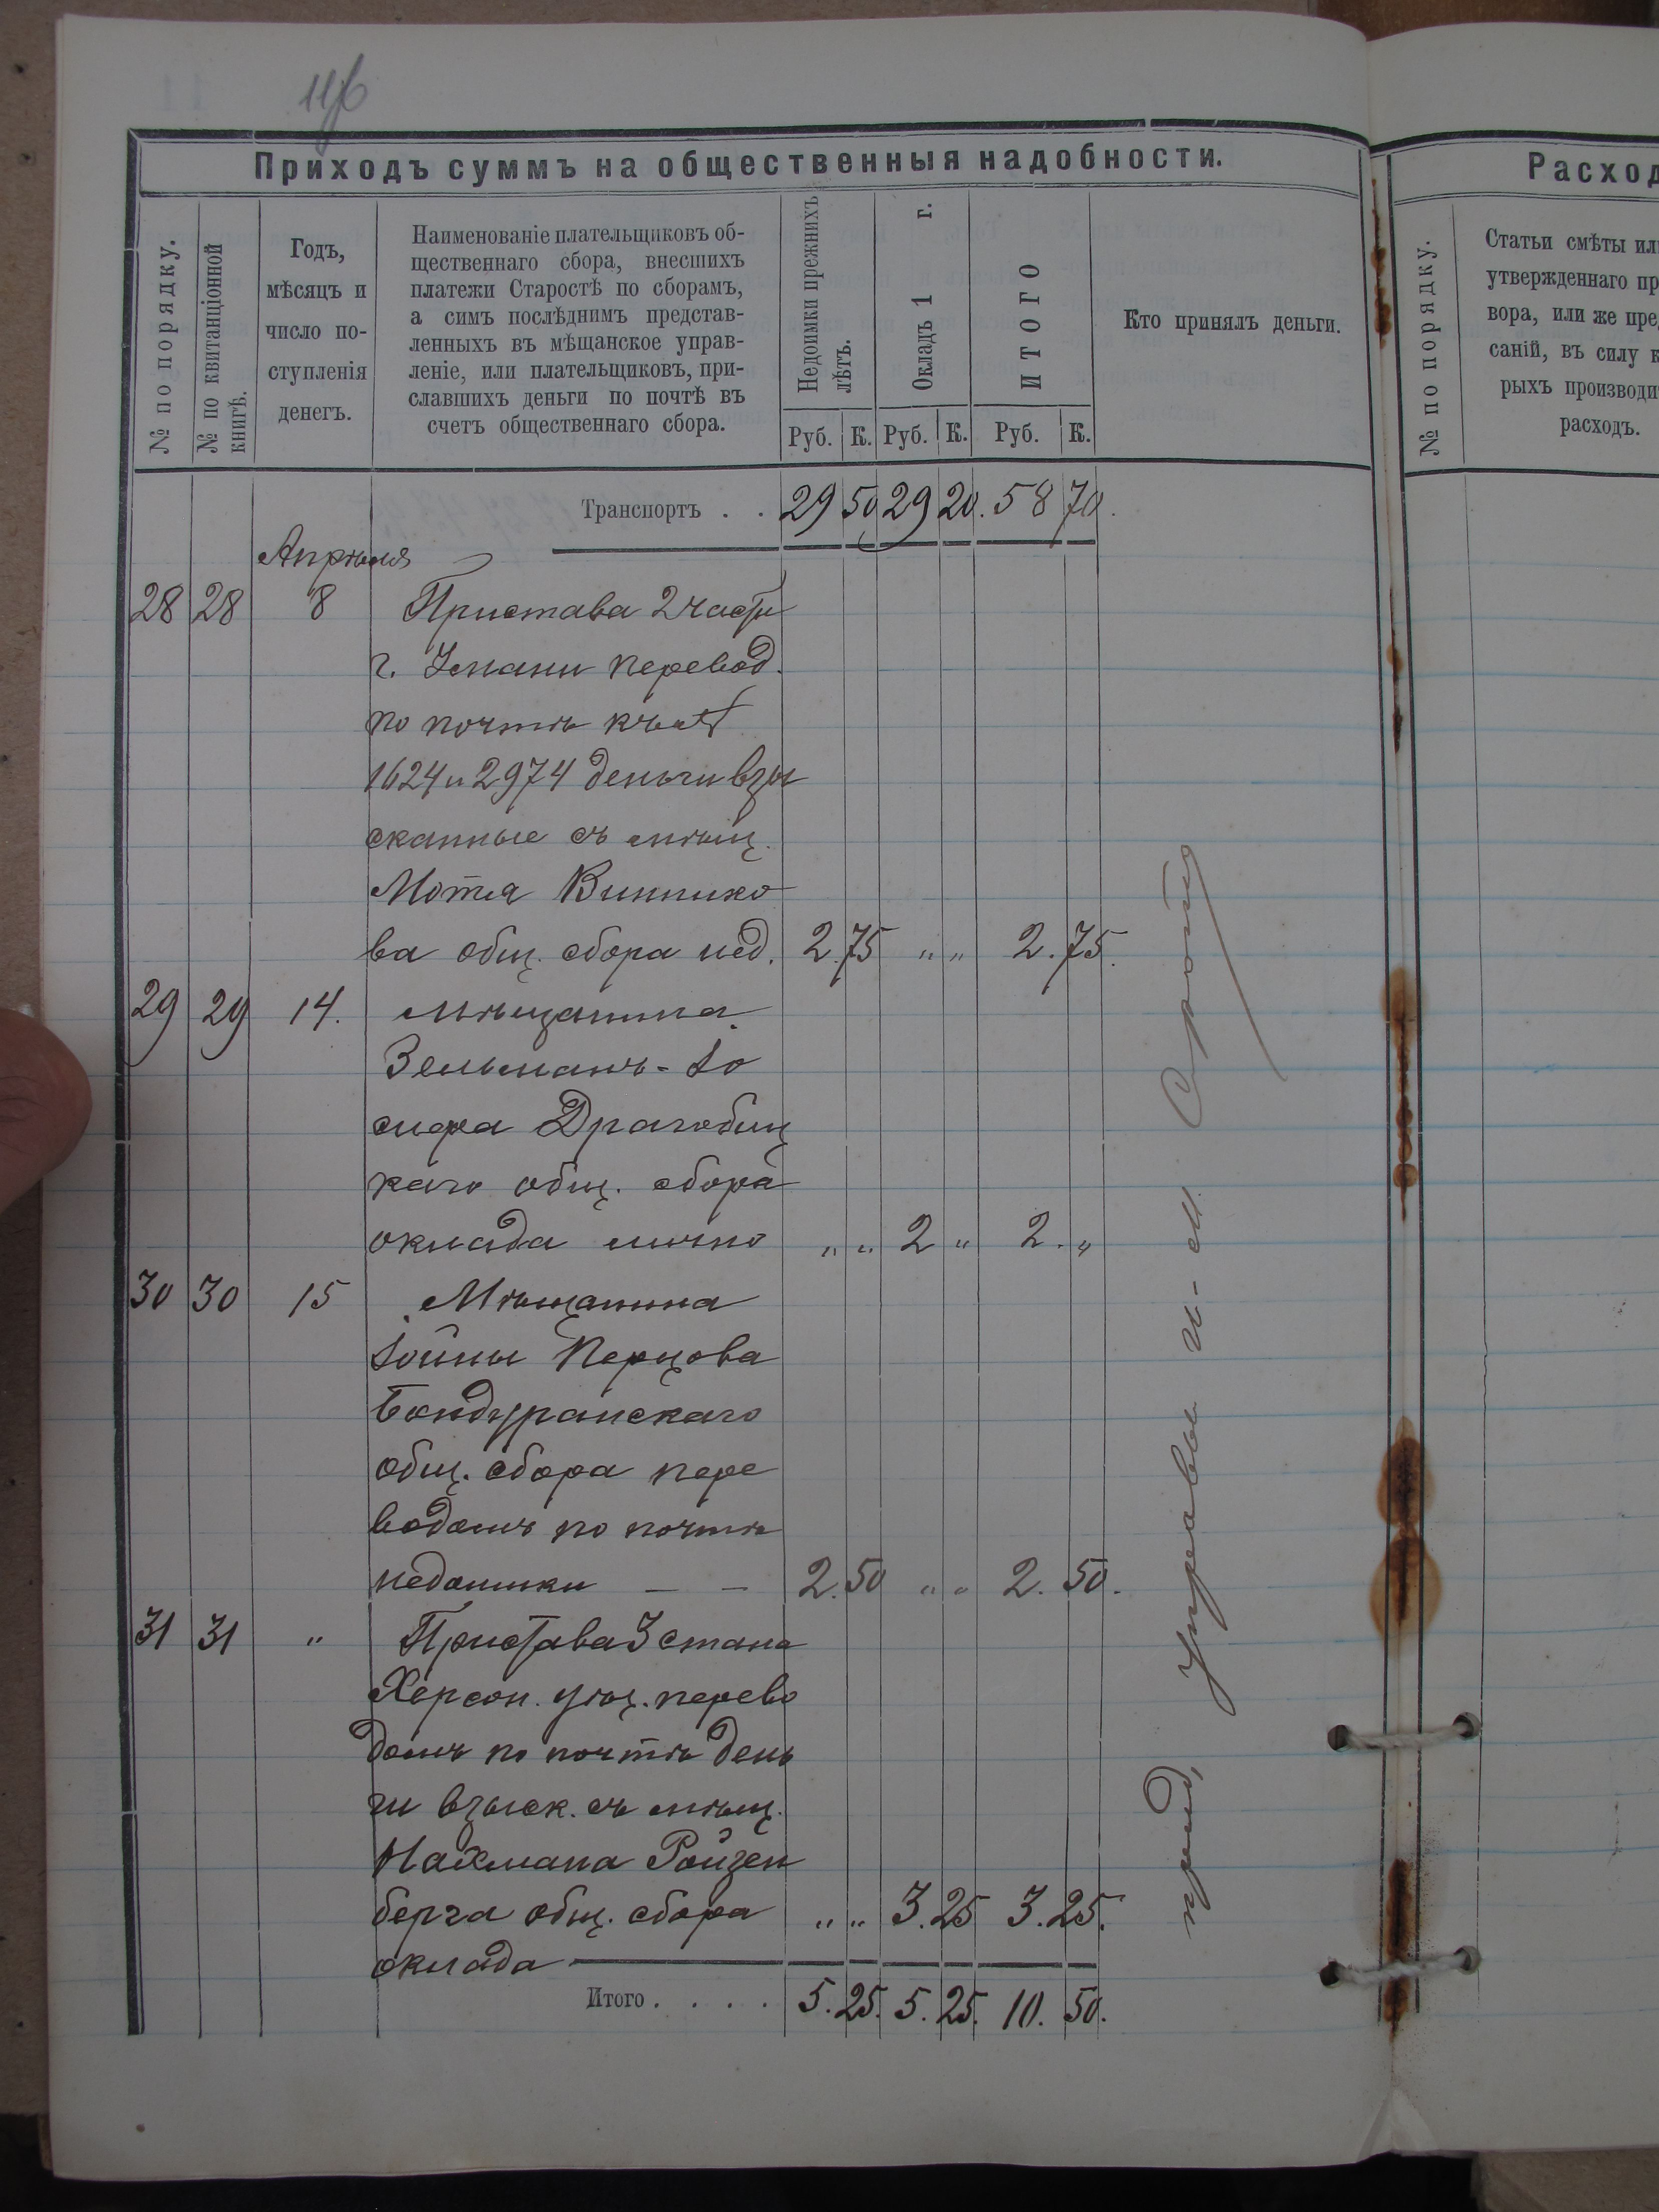 Приходъ суммъ на общественныя надобности.
№ по порядку.
№ по квитанціонной
книгѣ.
Годъ,
мѣсяцъ и
число по-
ступленія
денегъ.
Наименованіе плательщиковъ об-
щественнаго сбора, внесшихъ
платежи Старостѣ по сборамъ,
а симъ послѣднимъ представ-
ленныхъ въ мѣщанское управ-
леніе, или плательщиковъ, при-
славшихъ деньги по почтѣ въ
счетъ общественнаго сбора.
Недоимки прежнихъ
лѣтъ.
Окладъ 1 г.
ИТОГО
Руб. К. Руб. К. Руб. К.
Кто принялъ деньги.
Транспортъ . . 29 50 29 20. 58 70.
Апрѣля
28 28 8 Пристава 2 части
г. Умани перевод.
по почтѣ
1624 и 2974 деньги взы
сканные съ мѣщ.
Мотя Виннико
ва общ. сбора нед. 2.75 " " 2.75.
29 29 14. мѣщанина
Зельманъ-Іо
сифа Драгобиц
каго общ. сбора
оклада лично " " 2 " 2. "
30 30 15 Мѣщанина
Іойны Перцова
Бондуранскаго
общ. сбора пере
водомъ по почтѣ
недоимки — — 2.50 " " 2.50.
31 31 " Пристава 3 стана
Херсон. уѣз. перево
домъ по почтѣ день
ги взыск. съ мѣщ.
Нахмана Ройзен
берга общ. сбора " " 3.25 3.25.
оклада
Итого . . . . 5.25. 5.25. 10.50.
Управы
Расход
№ по порядку.
Статьи смѣты ил
утвержденнаго пр
вора, или же пре
саній, въ силу к
рыхъ производи
расходъ.